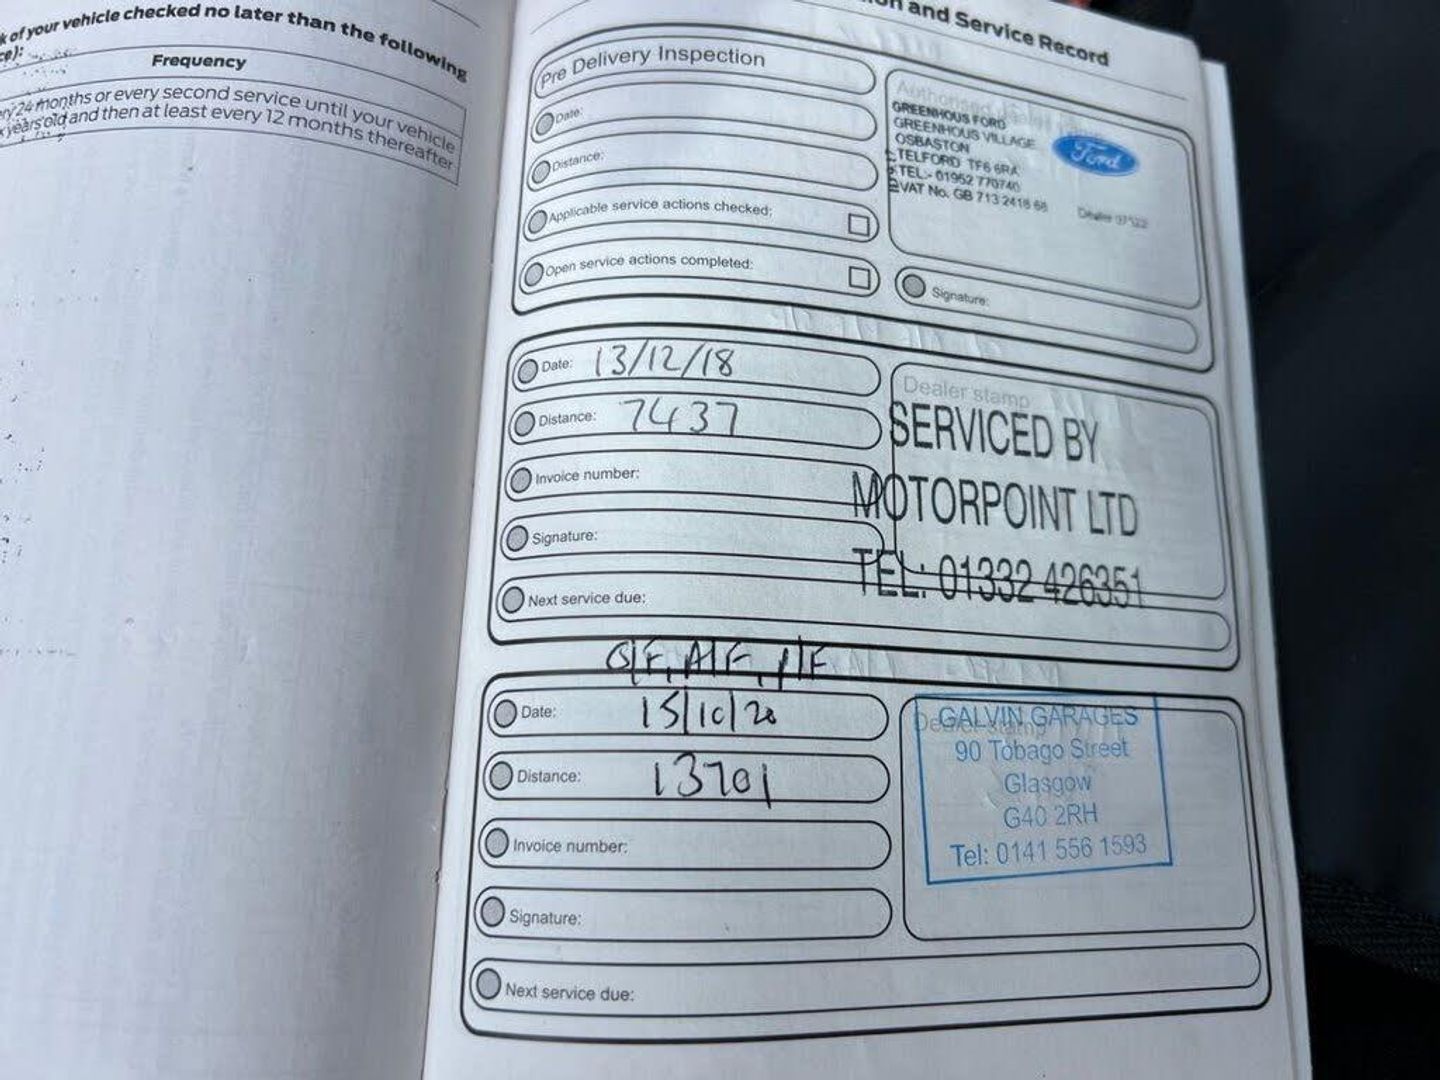 k of your vehicle checked no later than the following
ce):
Frequency
ry 24 months or every second service until your vehicle
x years old and then at least every 12 months thereafter
on and Service Record
Pre Delivery Inspection
Date:
Distance:
Applicable service actions checked:
Open service actions completed:
Authorised dealer
GREENHOUS FORD
GREENHOUS VILLAGE
OSBASTON
TELFORD TF6 6RA
TEL:- 01952 770740
VAT No. GB 713 2418 68
Ford
Dealer
Signature:
Date: 13/12/18
Distance: 7437
Invoice number:
Signature:
Next service due:
Dealer stamp
SERVICED BY
MOTORPOINT LTD
TEL: 01332 426351
O/F, A/F, P/F
Date: 15/10/20
Distance: 13701
Invoice number:
Signature:
Next service due:
Dealer stamp
GALVIN GARAGES
90 Tobago Street
Glasgow
G40 2RH
Tel: 0141 556 1593